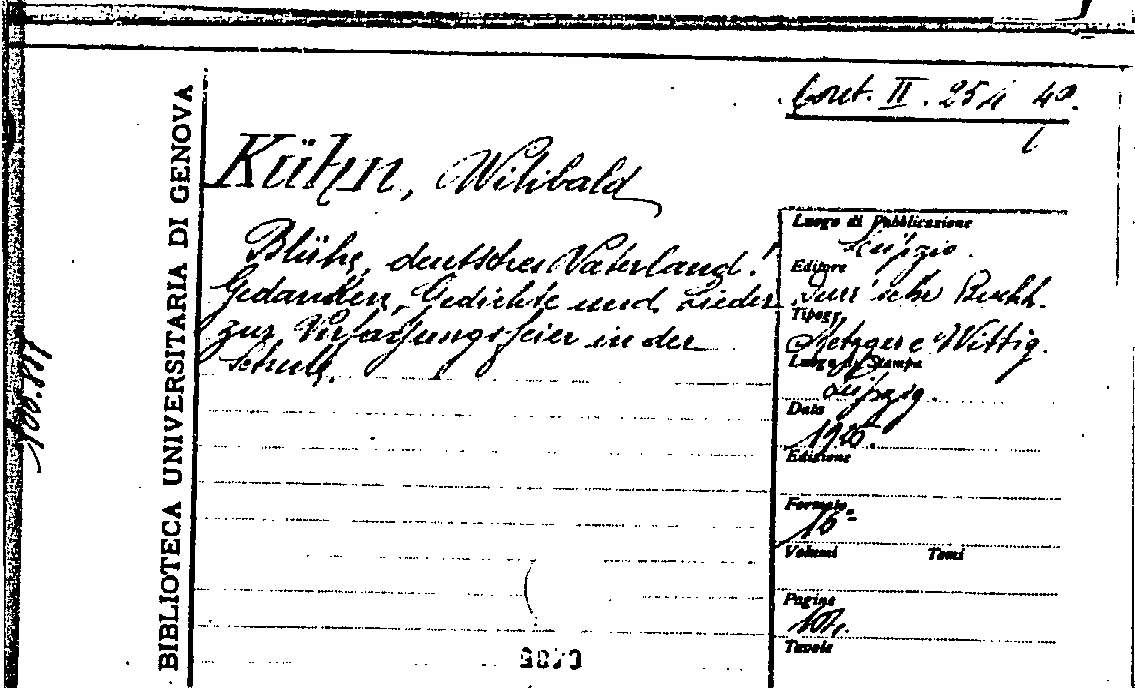 BIBLIOTECA UNIVERSITARIA DI GENOVA
Cont. II. 254 40.
Kühn, Wilibald
Blühe, deutsches Vaterland!
Gedanken, Gedichte und Lieder
zur Verfassungsfeier in der
Schule.
Luogo di Pubblicazione
Leipzig.
Editore
Dürr'sche Buchh.
Tipogr.
Metzger e Wittig.
Luogo di Stampa
Leipzig.
Data
Edizione
Formato
16°
Volumi Tomi
Pagine
Tavole